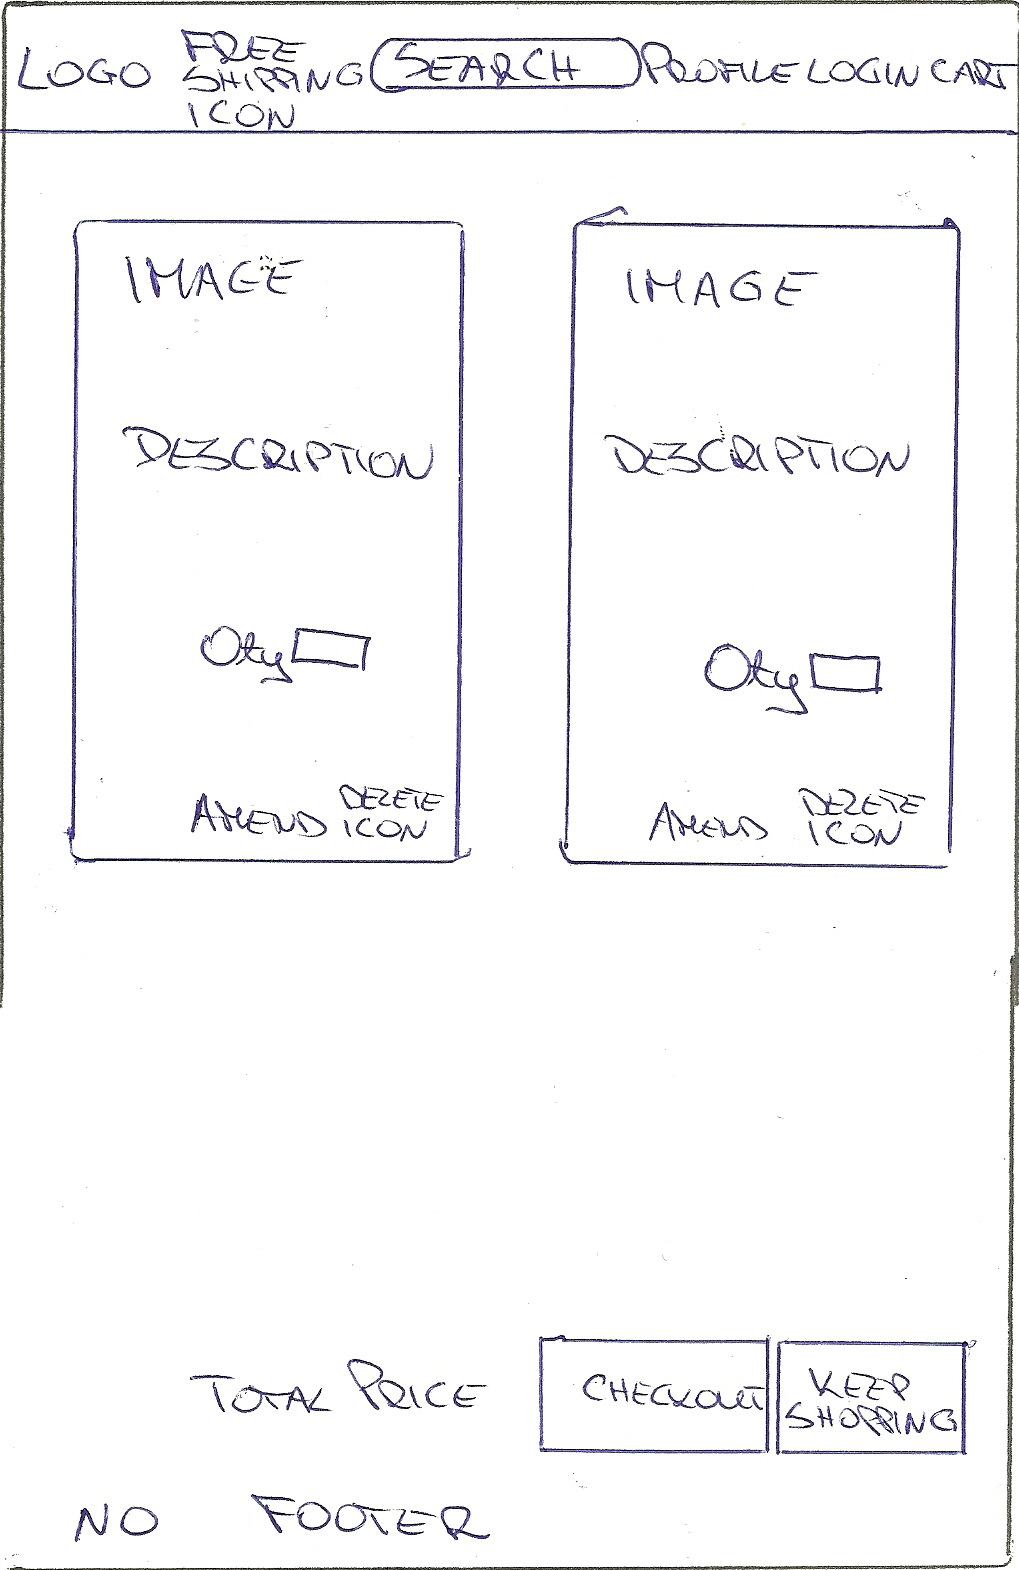 LOGO FREE SHIPPING ICON SEARCH PROFILE LOGIN CART
IMAGE
DESCRIPTION
Qty
AMEND DELETE ICON
IMAGE
DESCRIPTION
Qty
AMEND DELETE ICON
TOTAL PRICE CHECKOUT KEEP SHOPPING
NO FOOTER